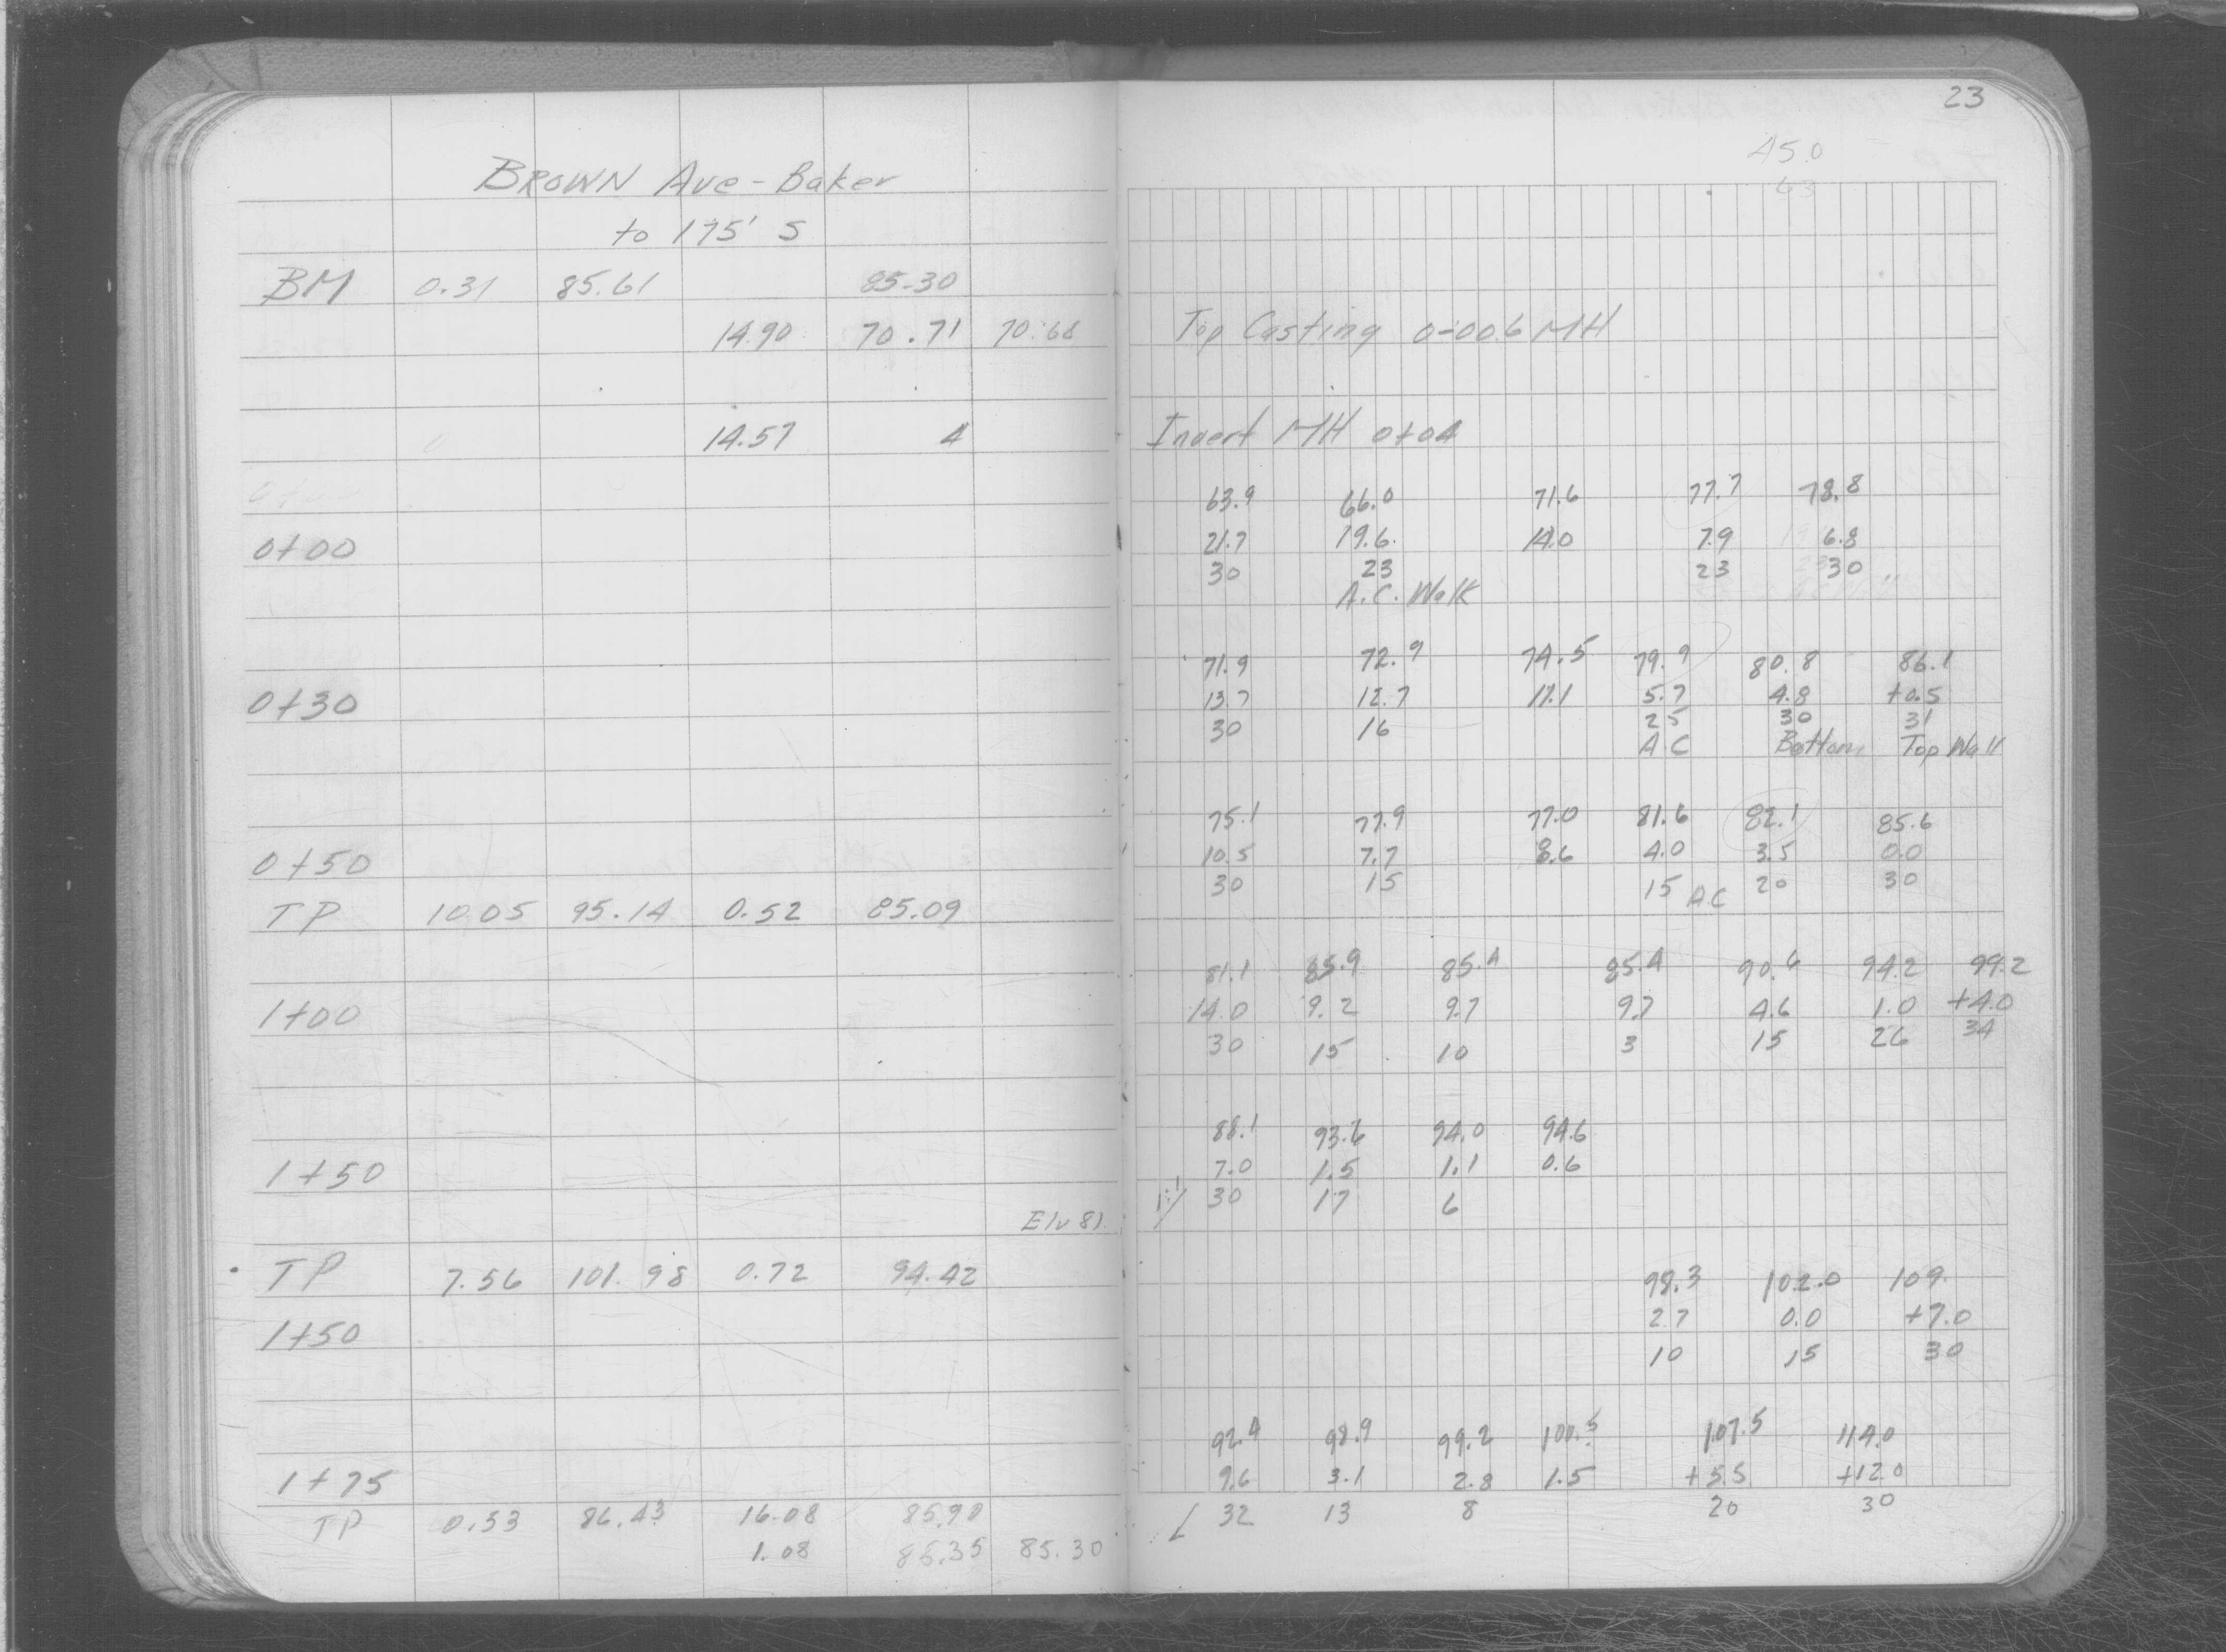 23
45.0
63
BROWN Ave - Baker
to 175' S
BM 0.31 85.61 85.30
14.90 70.71 70.68 Top Casting 0-00.6 MH
14.57 Invert MH 0+04
63.9 66.0 71.6 77.7 78.8
0+00 21.7 19.6 14.0 7.9 6.8
30 23 23 30
A.C. Walk
71.9 72.9 74.5 79.9 80.8 86.1
0+30 13.7 12.7 11.1 5.7 4.8 +0.5
30 16 25 30 31
A.C Bottom Top Wall
75.1 77.9 77.0 81.6 82.1 85.6
0+50 10.5 7.7 8.6 4.0 3.5 0.0
30 15 15 A.C 20 30
TP 10.05 95.14 0.52 85.09
81.1 85.9 85.4 85.4 90.6 94.2 99.2
1+00 14.0 9.2 9.7 9.7 4.6 1.0 +4.0
30 15 10 3 15 26 34
88.1 93.6 94.0 94.6
1+50 7.0 1.5 1.1 0.6
1:1 30 17 6
Elv 81.
TP 7.56 101.98 0.72 94.42
98.3 102.0 109.
1+50 2.7 0.0 +7.0
10 15 30
92.4 98.9 99.2 100.5 107.5 114.0
1+75 9.6 3.1 2.8 1.5 +5.5 +12.0
L 32 13 8 20 30
TP 0.53 86.43 16.08 85.90
1.08 85.35 85.30